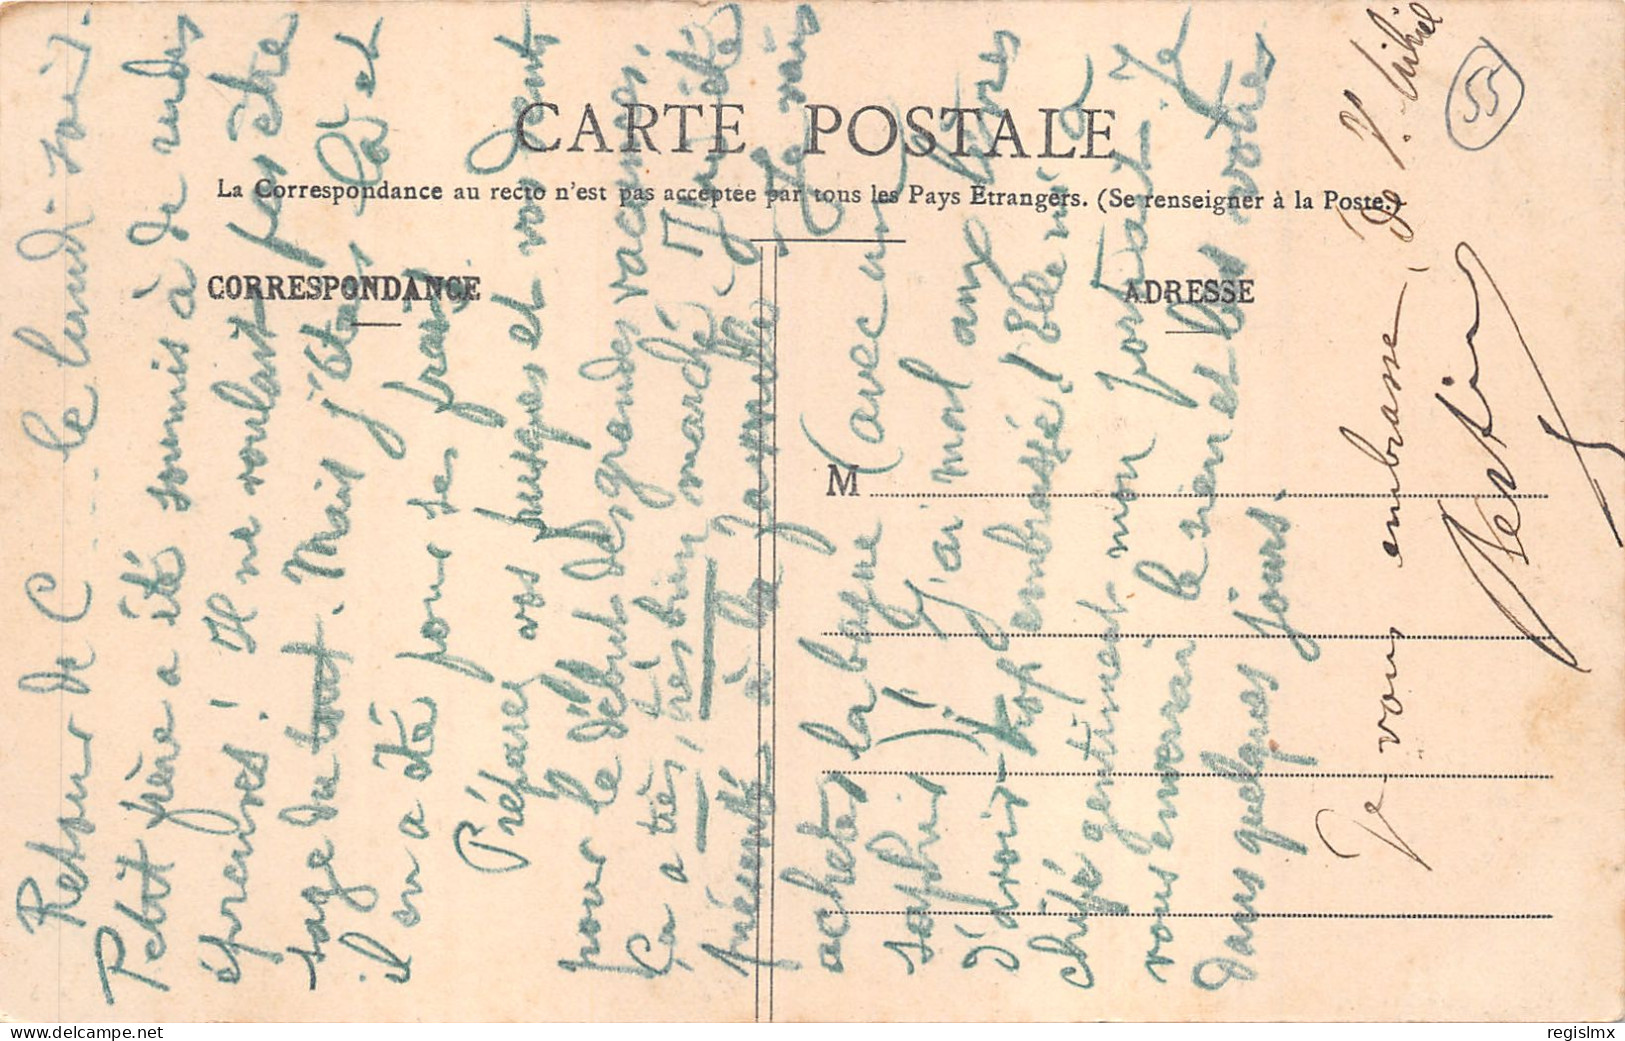 CARTE POSTALE
La Correspondance au recto n'est pas acceptée par tous les Pays Etrangers. (Se renseigner à la Poste.)
CORRESPONDANCE
ADRESSE
M
Retour de C.... le lundi-soir.
Petit frère a été soumis à de rudes
épreuves! Il ne voulait pas être
sage du tout. Mais j'étais là et
il en a été pour ses frais
Préparez vos bagues et vos dents
pour le début des grandes vacances.
Ça a très, très bien marché. J'ai été
présenté à la famille. Je vais
acheter la bague (avec un
saphir)! J'ai mal aux lèvres
d'avoir trop embrassé! Elle m'a
chipé gentiment mon portrait. Je
vous enverrai le sien et les vôtres
dans quelques jours.
Je vous embrasse.
De St. Mihiel
55